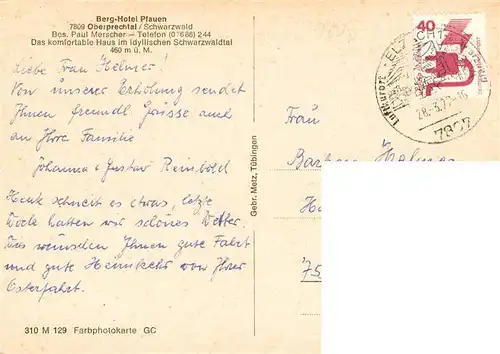 Berg-Hotel Pfauen
7809 Oberprechtal / Schwarzwald
Bes. Paul Merscher — Telefon (07686) 244
Das komfortable Haus im idyllischen Schwarzwaldtal
460 m ü. M.
Liebe Frau Helmer!
Von unserer Erholung sendet
Ihnen freundl. Grüsse auch
an Ihre Familie
Johanna + Gustav Reinbold
Heute schneit es etwas, letzte
Woche hatten wir schönes Wetter.
Wir wünschen Ihnen gute Fahrt
und gute Heimkehr von Ihrer
Osterfahrt.
310 M 129 Farbphotokarte GC
Gebr. Metz, Tübingen
40
Luftkurort
28.3.72-16
7807
Frau
75